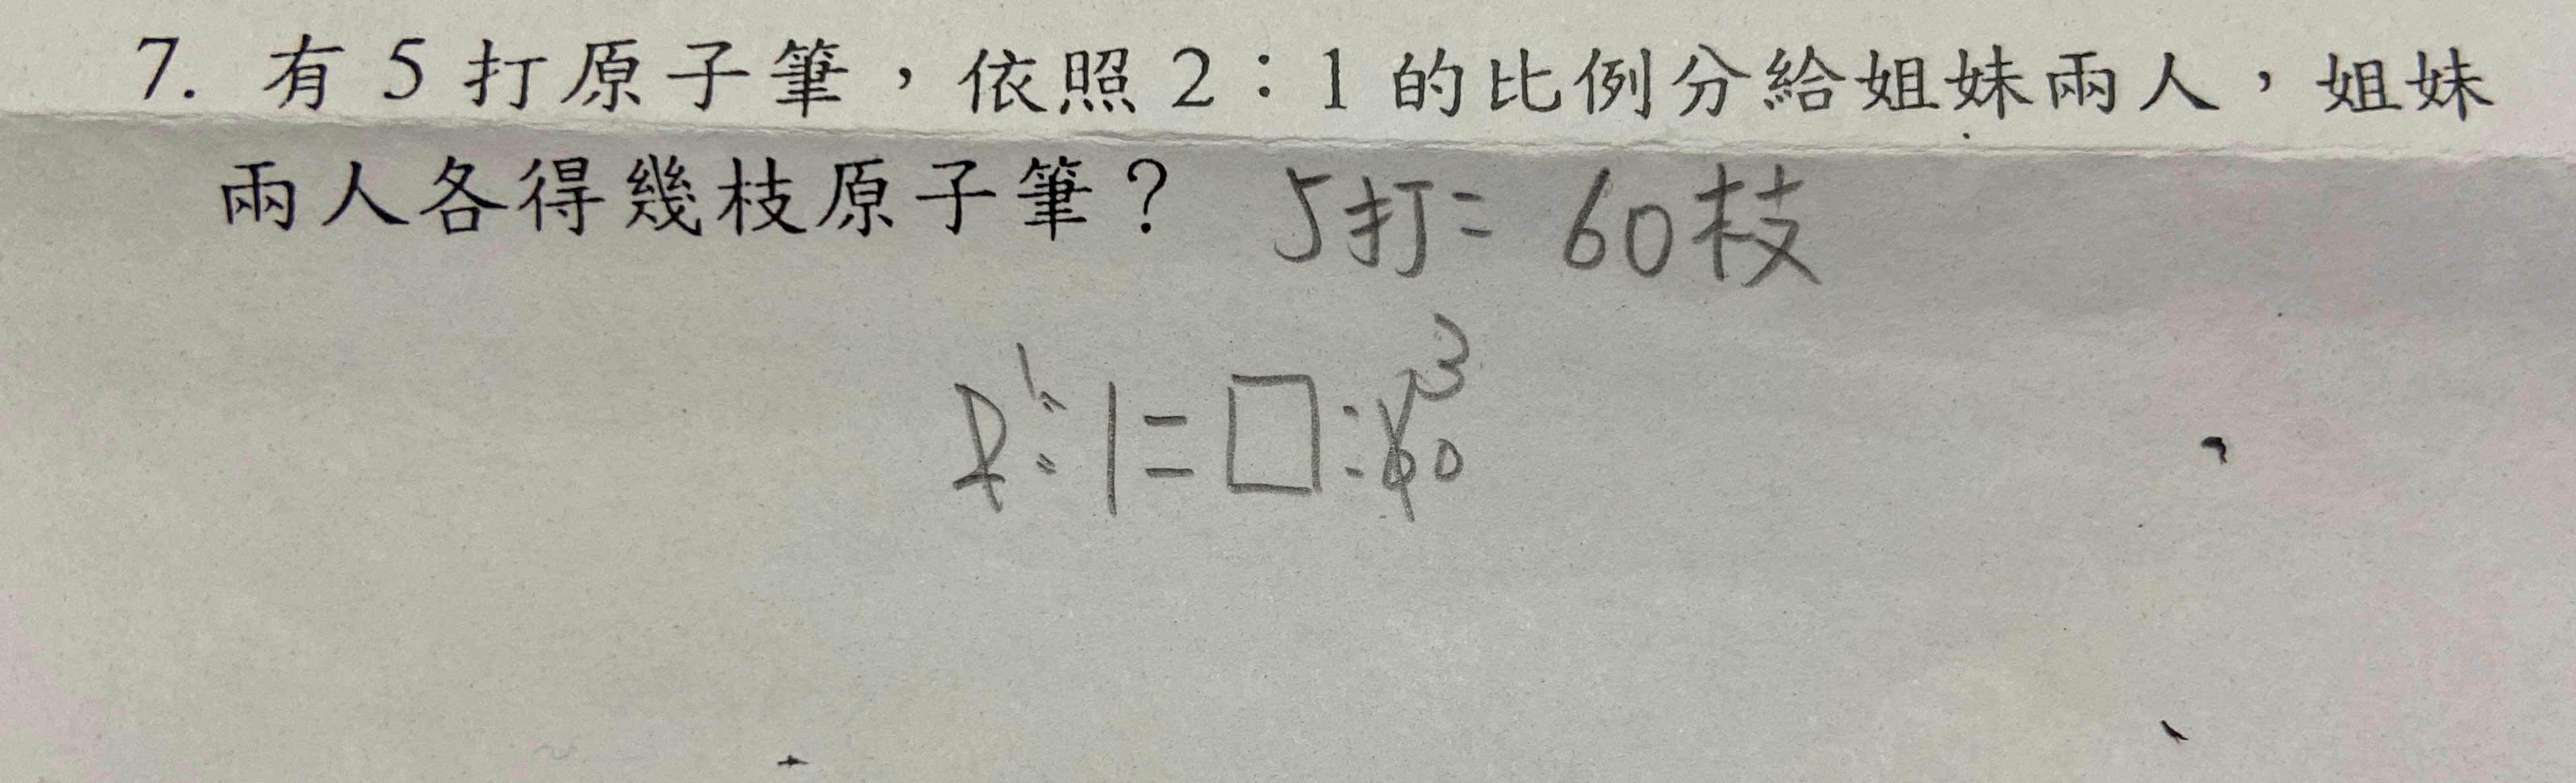 7. 有 5 打原子筆，依照 2：1 的比例分給姐妹兩人，姐妹
兩人各得幾枝原子筆？ 5打= 60枝
1 3
2:1=□:60